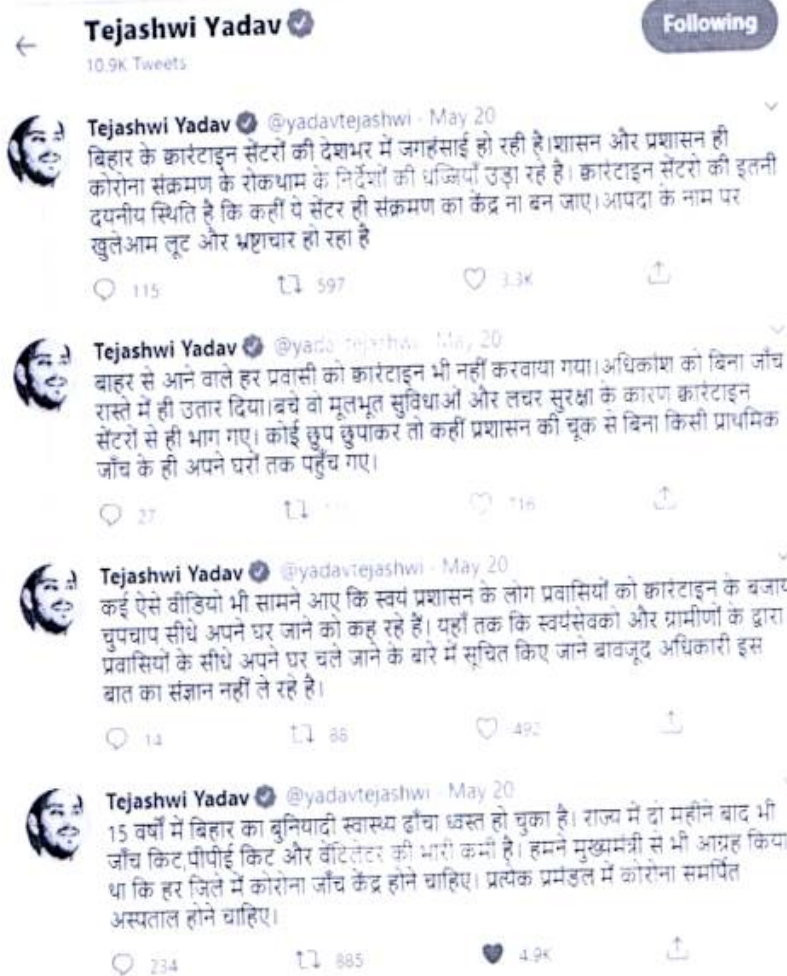 Tejashwi Yadav
Following
10.9K Tweets
Tejashwi Yadav @yadavtejashwi · May 20
बिहार के क्वारंटाइन सेंटरों की देशभर में जगहंसाई हो रही है।शासन और प्रशासन ही
कोरोना संक्रमण के रोकथाम के निर्देशों की धज्जियाँ उड़ा रहे है। क्वारंटाइन सेंटरो की इतनी
दयनीय स्थिति है कि कहीं ये सेंटर ही संक्रमण का केंद्र ना बन जाए।आपदा के नाम पर
खुलेआम लूट और भ्रष्टाचार हो रहा है
115 597 3.3K
Tejashwi Yadav May 20
बाहर से आने वाले हर प्रवासी को क्वारंटाइन भी नहीं करवाया गया।अधिकांश को बिना जाँच
रास्ते में ही उतार दिया।बचे वो मूलभूत सुविधाओं और लचर सुरक्षा के कारण क्वारंटाइन
सेंटरों से ही भाग गए। कोई छुप छुपाकर तो कहीं प्रशासन की चूक से बिना किसी प्राथमिक
जाँच के ही अपने घरों तक पहुँच गए।
27
Tejashwi Yadav @yadavtejashwi · May 20
कई ऐसे वीडियो भी सामने आए कि स्वयं प्रशासन के लोग प्रवासियों को क्वारंटाइन के बजाय
चुपचाप सीधे अपने घर जाने को कह रहे हैं। यहाँ तक कि स्वयंसेवको और ग्रामीणों के द्वारा
प्रवासियों के सीधे अपने घर चले जाने के बारे में सूचित किए जाने बावजूद अधिकारी इस
बात का संज्ञान नहीं ले रहे है।
14 88 492
Tejashwi Yadav @yadavtejashwi · May 20
15 वर्षों में बिहार का बुनियादी स्वास्थ्य ढाँचा ध्वस्त हो चुका है। राज्य में दो महीने बाद भी
जाँच किट,पीपीई किट और वेंटिलेटर की भारी कमी है। हमने मुख्यमंत्री से भी आग्रह किया
था कि हर जिले में कोरोना जाँच केंद्र होने चाहिए। प्रत्येक प्रमंडल में कोरोना समर्पित
अस्पताल होने चाहिए।
234 885 4.9K